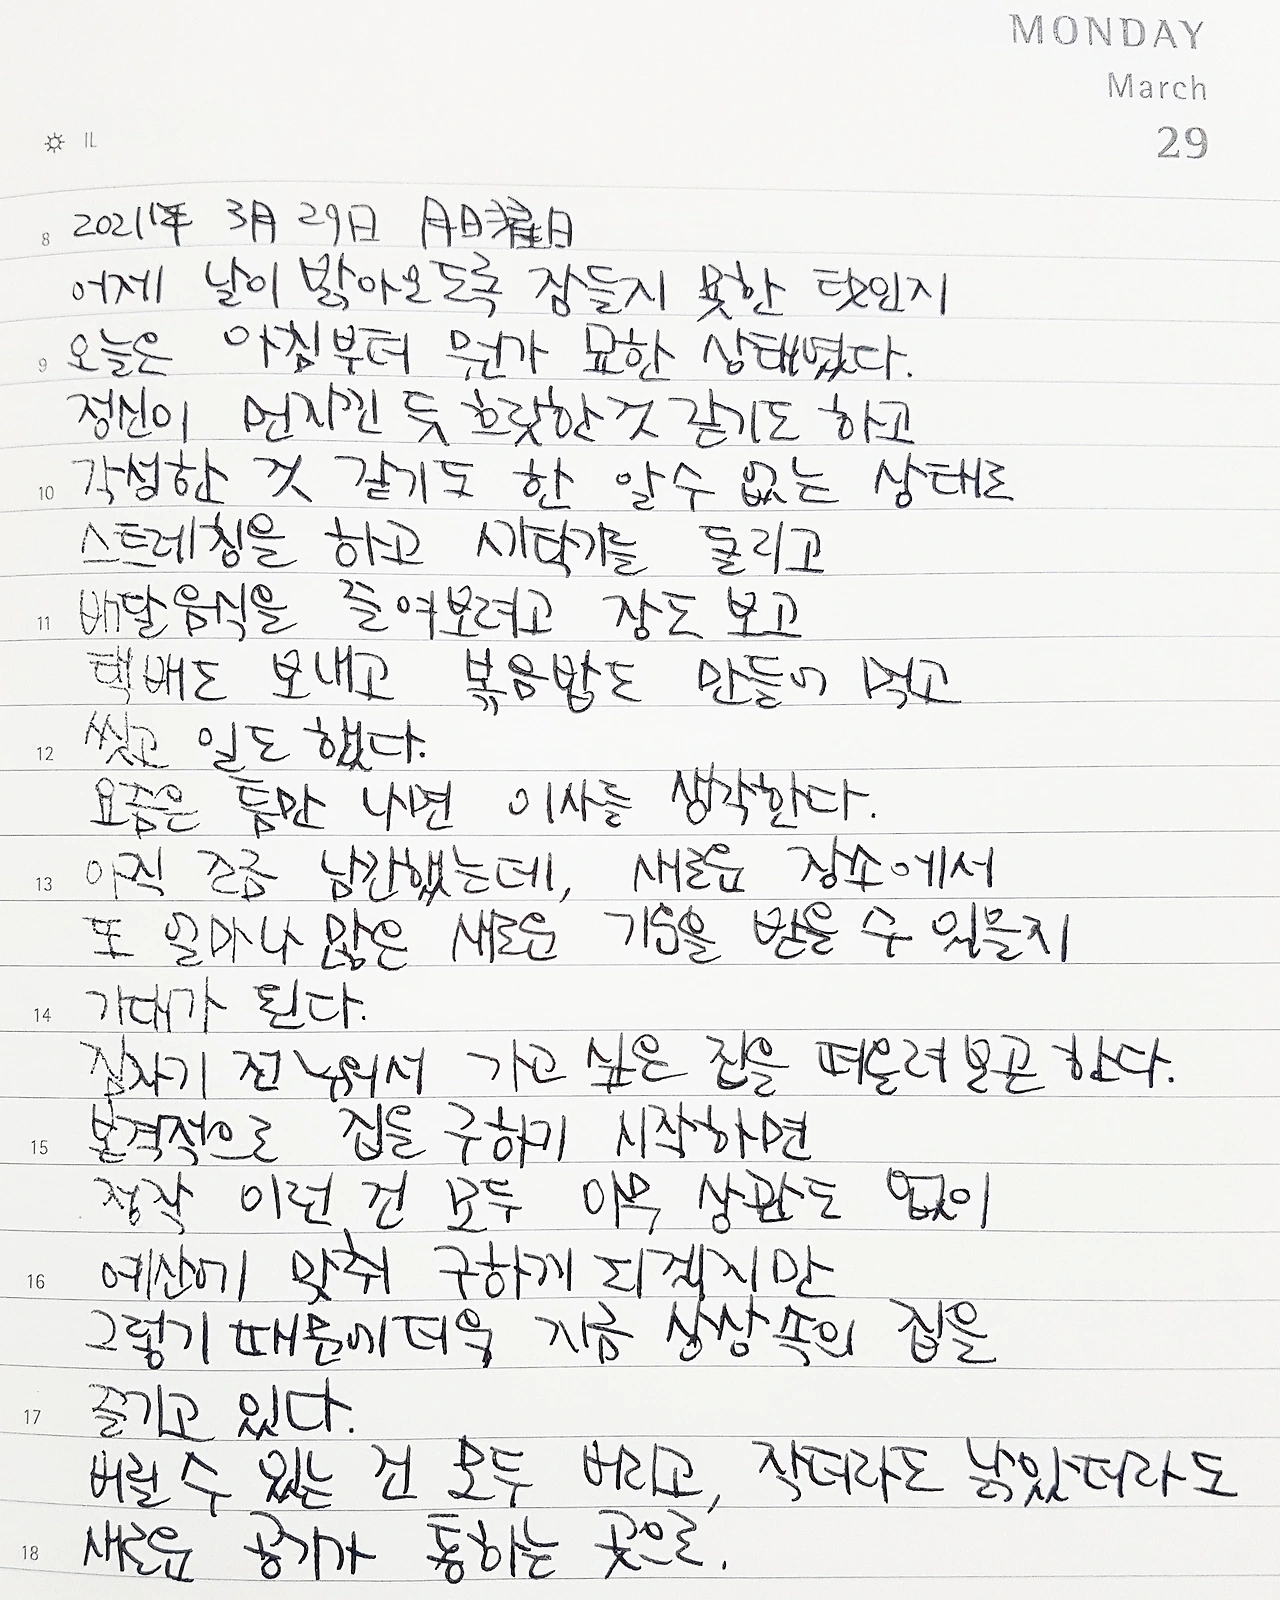 MONDAY
March
29
IL
8 2021年 3月 29日 月曜日
어제 날이 밝아오도록 잠들지 못한 탓인지
9 오늘은 아침부터 뭔가 묘한 상태였다.
정신이 먼지낀 듯 흐릿한 것 같기도 하고
10 각성한 것 같기도 한 알 수 없는 상태로
스트레칭을 하고 세탁기를 돌리고
11 배달음식을 줄여보려고 장도 보고
택배도 보내고 볶음밥도 만들어 먹고
12 씻고 일도 했다.
요즘은 틈만 나면 이사를 생각한다.
13 아직 조금 남긴했는데, 새로운 장소에서
또 얼마나 많은 새로운 기운을 받을 수 있을지
14 기대가 된다.
잠자기 전 누워서 가고 싶은 집을 떠올려보곤 한다.
15 본격적으로 집을 구하기 시작하면
정작 이런 건 모두 아무 상관도 없이
16 예산에 맞춰 구하게 되겠지만
그렇기 때문에 더욱 지금 상상속의 집을
17 즐기고 있다.
버릴 수 있는 건 모두 버리고, 작더라도 낡았더라도
18 새로운 공기가 통하는 곳으로.